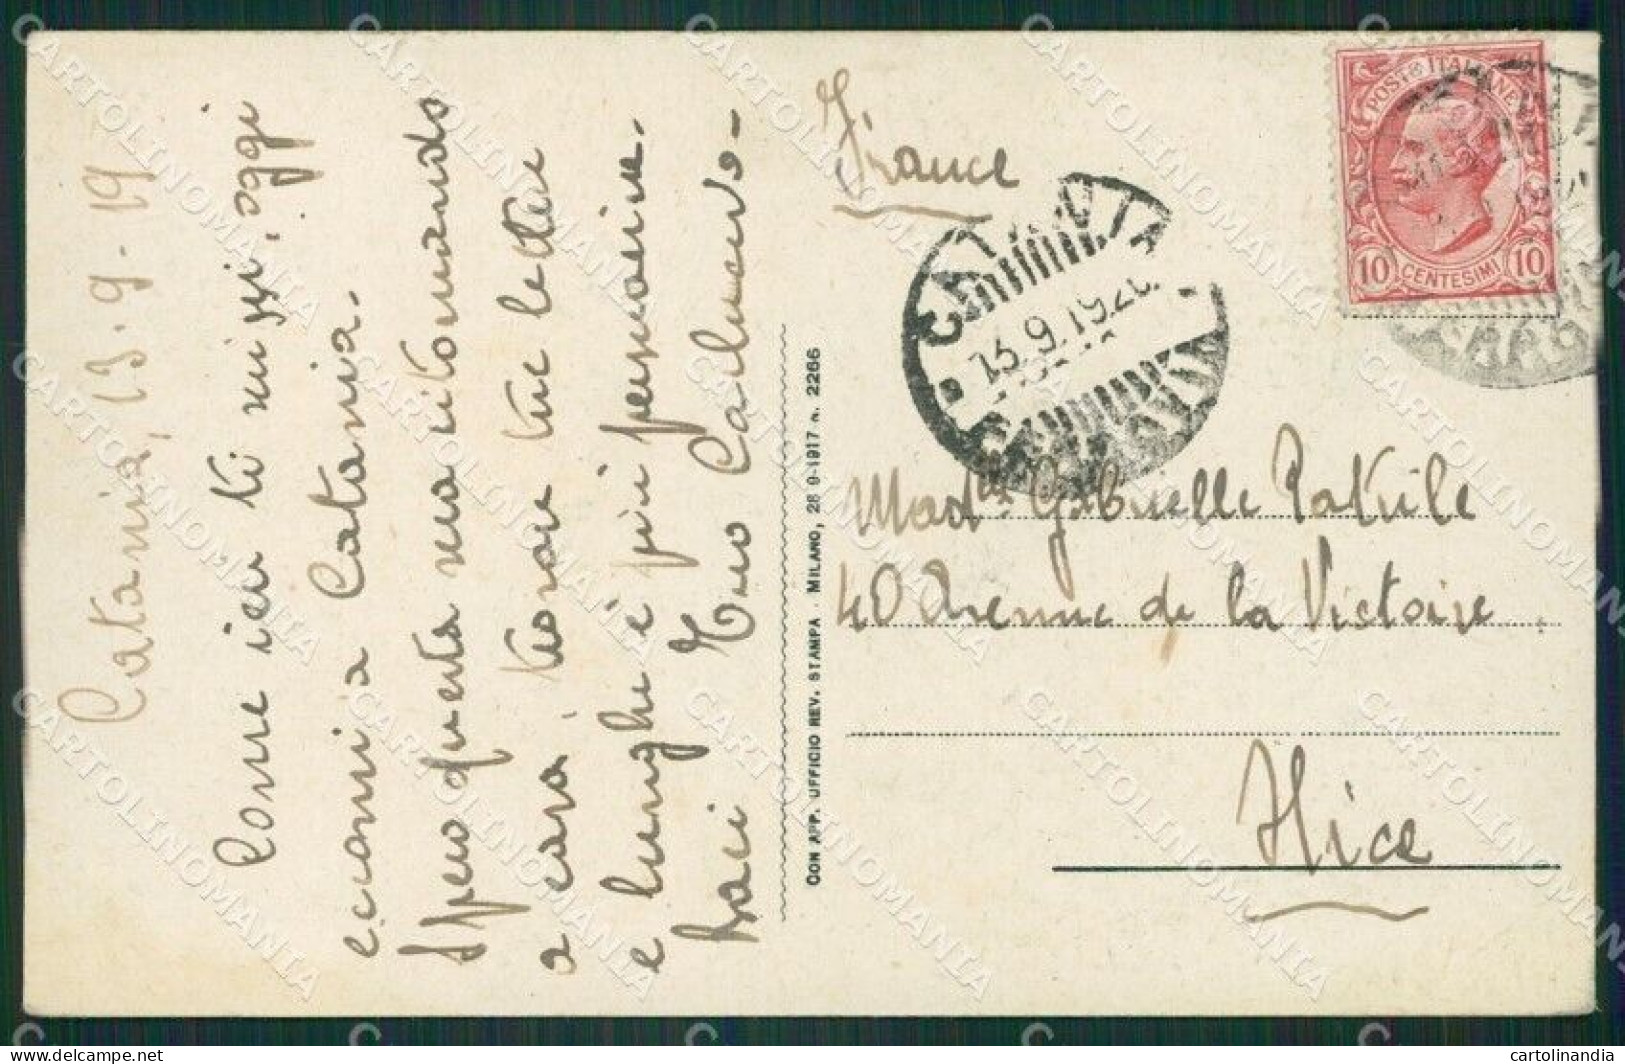 Catania, 13.9.19
Come ieri ti scrissi, oggi
eccomi a Catania.
Spero questa sera ritornando
a casa, trovare tue lettere
e lunghe e più
Baci Tuo
CON APP. UFFICIO REV. STAMPA . MILANO, 28 9-1917 n. 2266
France
CATANIA
13.9.1920
POSTE ITALIANE
10 CENTESIMI 10
Madlle Gabrielle
40 Avenue de la Victoire
Nice
CARTOLINOMANIA
cartolinandia